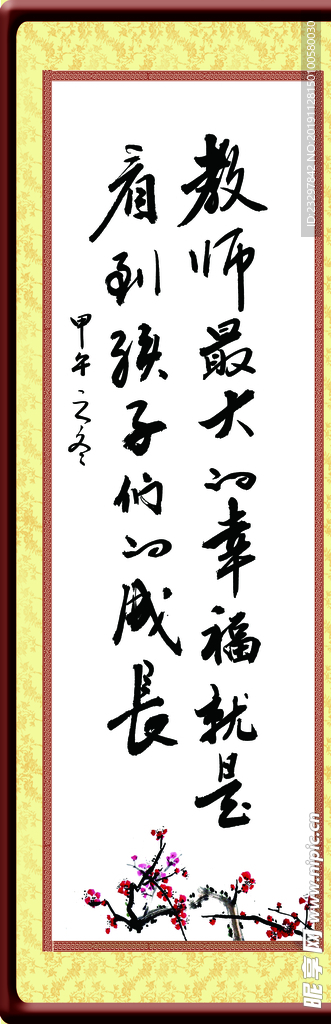 教师最大的幸福就是
看到孩子们的成长
甲午之冬
ID:23297842 NO:20191128150100580030
昵享网 www.nipic.cn